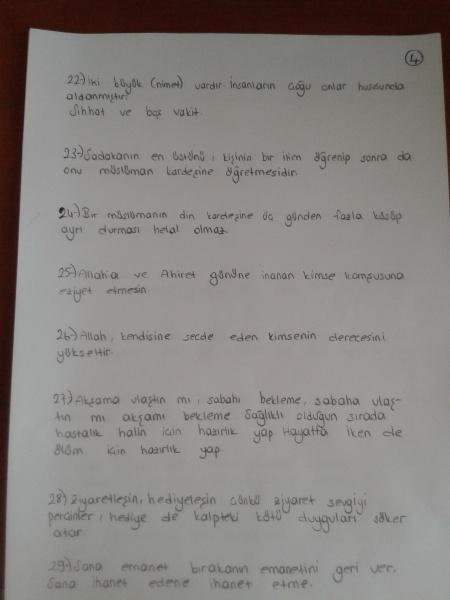 4
22-) İki büyük (nimet) vardır. İnsanların çoğu onlar hususunda
aldanmıştır.
Sıhhat ve boş vakit.
23-) Sadakanın en üstünü, kişinin bir ilim öğrenip sonra da
onu müslüman kardeşine öğretmesidir.
24-) Bir müslümanın din kardeşine üç günden fazla küsüp
ayrı durması helal olmaz.
25-) Allah'a ve Ahiret gününe inanan kimse komşusuna
eziyet etmesin.
26-) Allah, kendisine secde eden kimsenin derecesini
yükseltir.
27-) Akşama ulaştın mı, sabahı bekleme, sabaha ulaş-
tın mı akşamı bekleme Sağlıklı olduğun sırada
hastalık halin için hazırlık yap. Hayatta iken de
ölüm için hazırlık yap.
28-) Ziyaretleşin, hediyeleşin çünkü ziyaret sevgiyi
perçinler, hediye de kalpteki kötü duyguları söker
atar
29-) Sana emanet bırakanın emanetini geri ver.
Sana ihanet edene ihanet etme.